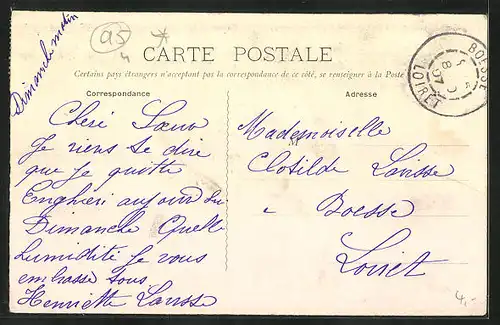 Dimanche matin
95
CARTE POSTALE
Certains pays étrangers n'acceptant pas la correspondance de ce côté, se renseigner à la Poste
Correspondance
Adresse
Cheri Sœur
Je viens te dire
que je quitte
Enghien aujourdui
Dimanche Quelle
humidité je vous
embrasse tous
Henriette Larisse
M
Mademoiselle
Clotilde Larisse
a Boesse
Loiret
BOESSE
LOIRET
4.-